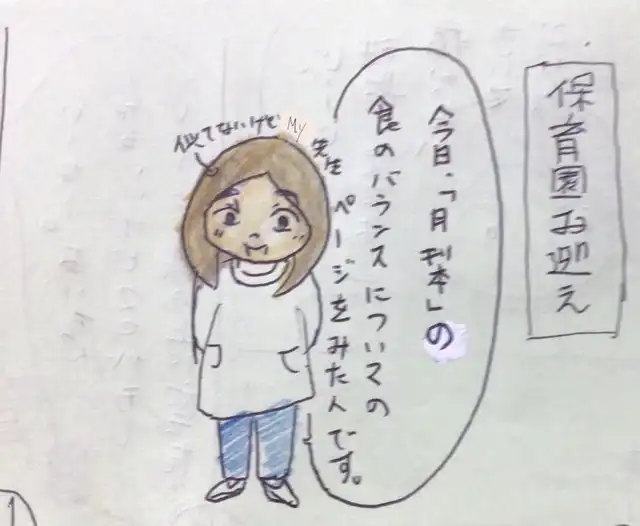 保育園お迎え
今日、「月刊本」の
食のバランスについての
ページをみた人です。
似てないけど My 先生
1